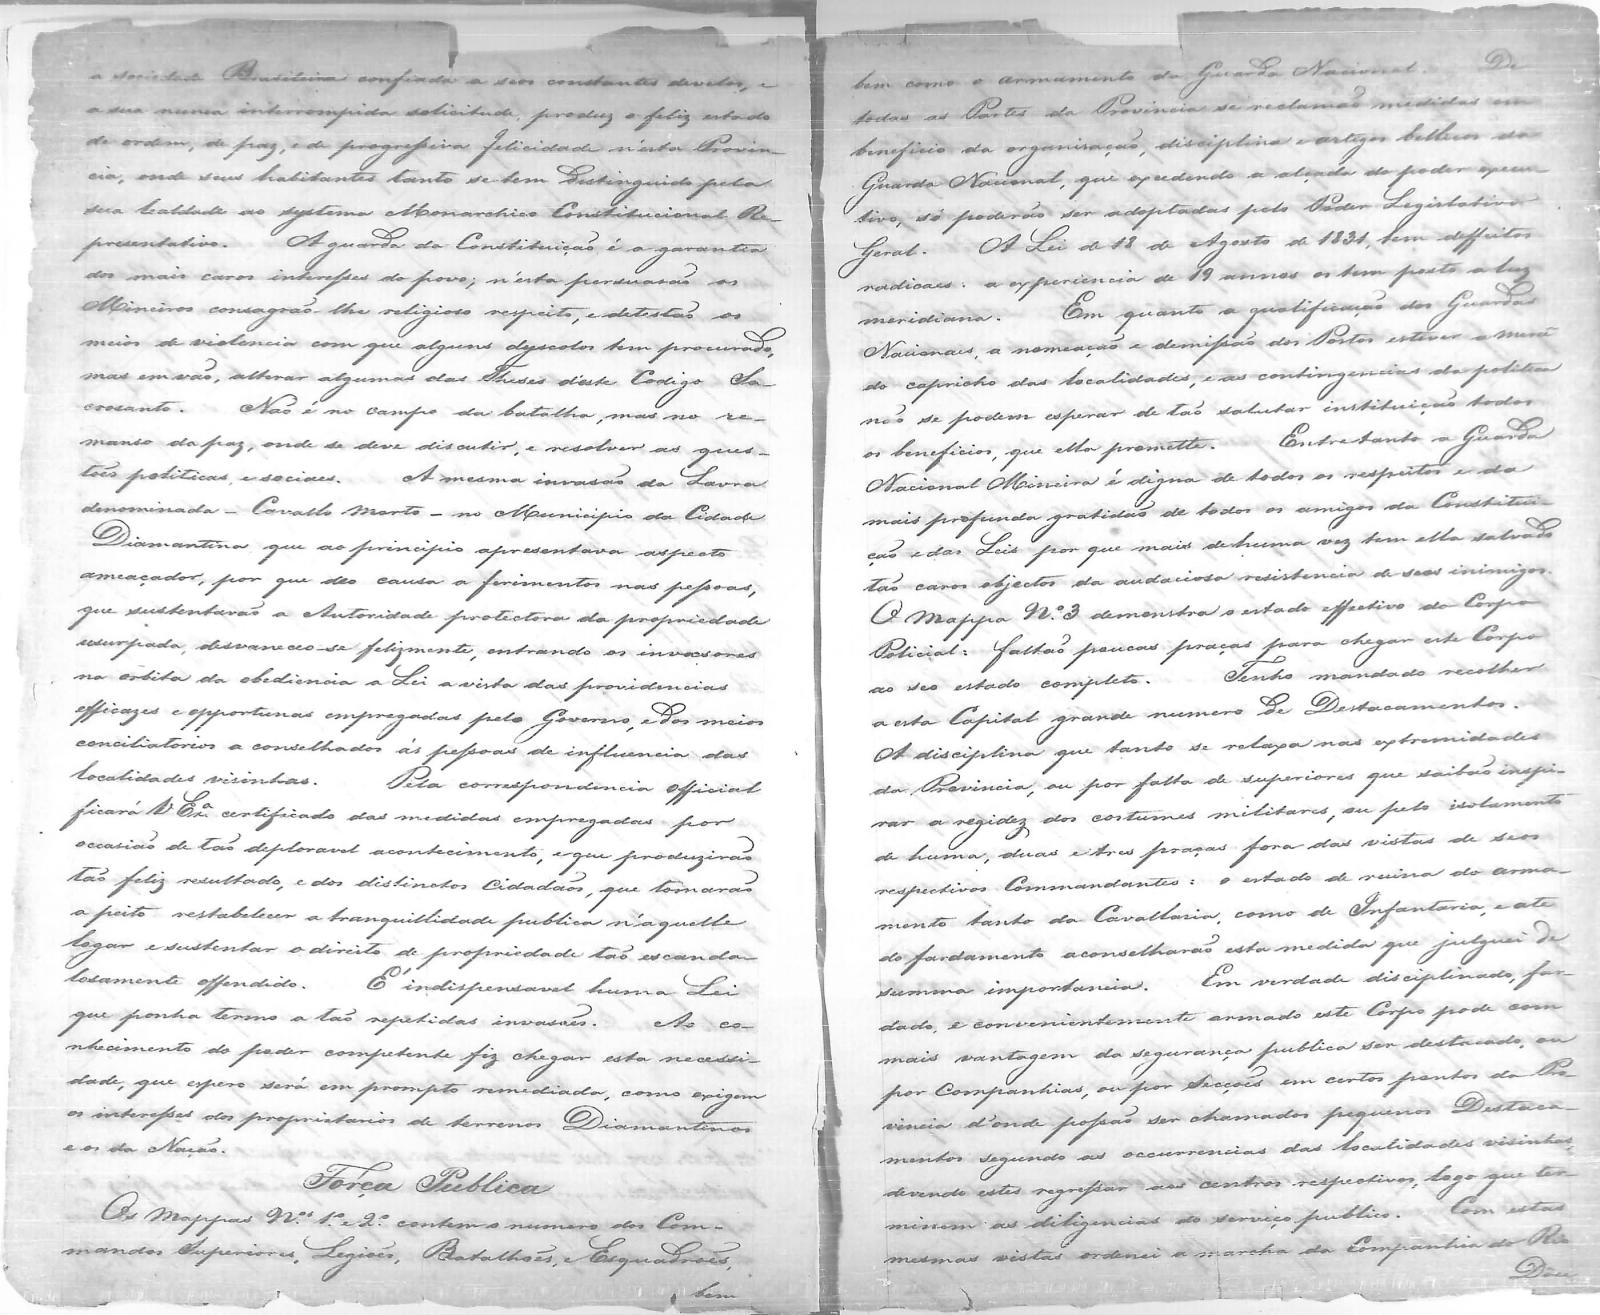 a sociedade Brasileira confiada a seos constantes desvelos, e
a sua nunca interrompida solicitude, produz o feliz estado
de ordem, de paz, e de progressiva felicidade n'esta Provin-
cia, onde seus habitantes tanto se tem distinguido pela
sua lealdade ao systema Monarchico Constitucional Re-
presentativo. A guarda da Constituição é a garantia
dos mais caros interesses do povo; n'esta persuasão os
Mineiros consagrão-lhe religioso respeito, e detestão os
meios de violencia com que alguns dyscolos tem procurado,
mas em vão, alterar algumas das Theses d'este Codigo Sa-
crosanto. Não é no campo da batalha, mas no re-
manso da paz, onde se deve discutir, e resolver as ques-
tões politicas, e sociaes. A mesma invasão da Lavra
denominada - Cavallo morto - no Municipio da Cidade
Diamantina que ao principio apresentava aspecto
ameaçador, por que deo causa a ferimentos nas pessoas,
que sustentarão a Autoridade protectora da propriedade
usurpada, desvaneceo-se felizmente, entrando os invasores
na orbita da obediencia a Lei a vista das providencias
efficazes e opportunas empregadas pelo Governo, e dos meios
conciliatorios aconselhados ás pessoas de influencia das
localidades visinhas. Pela correspondencia official
ficará V Exª. certificado das medidas empregadas por
occasião de tão deploravel acontecimento, e que produzirão
tão feliz resultado, e dos distinctos Cidadãos, que tomarão
a peito restabelecer a tranquillidade publica n'aquelle
logar e sustentar o direito de propriedade tão escanda-
losamente offendido. É indispensavel huma Lei
que ponha termo a tão repetidas invasões. Ao co-
nhecimento do poder competente fiz chegar esta necessi-
dade, que espero será em prompto remediada, como exigem
os interesses dos proprietarios de terrenos Diamantinos
e os da Nação.
Força Publica
Os Mappas Nos. 1º. e 2º. contem o numero dos Com-
mandos Superiores, Legiões, Batalhões, e Esquadrões,
bem
bem como o armamento da Guarda Nacional. De
todas as Partes da Provincia se reclamão medidas em
beneficio da organisação, disciplina e artigos bellicos da
Guarda Nacional, que excedendo a alçada do poder execu-
tivo, só poderão ser adoptadas pelo Poder Legislativo
Geral. A Lei de 18 de Agosto de 1831, tem deffeitos
radicaes: a experiencia de 19 annos os tem posto a luz
meridiana. Em quanto a qualificação dos Guardas
Nacionaes, a nomeação e demissão dos Postos estiver a mercê
do capricho das localidades, e as contingencias da politica
não se podem esperar de tão salutar instituição todos
os beneficios, que ella promette. Entretanto a Guarda
Nacional Mineira é digna de todos os respeitos e da
mais profunda gratidão de todos os amigos da Constitui-
ção e das Leis por que mais de huma vez tem ella salvado
tão caros objectos da audaciosa resistencia de seos inimigos.
O Mappa Nº. 3 demonstra o estado effectivo do Corpo
Policial: faltão poucas praças para chegar este Corpo
ao seo estado completo. Tenho mandado recolher
a esta Capital grande numero de Destacamentos.
A disciplina que tanto se relaxa nas extremidades
da Provincia, ou por falta de superiores que saibão inspi-
rar a regidez dos costumes militares, ou pelo isolamento
de huma, duas e tres praças fora das vistas de seos
respectivos Commandantes: o estado de ruina do arma-
mento tanto da Cavallaria, como de Infantaria, e até
do fardamento aconselharão esta medida que julguei de
summa importancia. Em verdade disciplinado, far-
dado, e convenientemente armado este Corpo pode com
mais vantagem da segurança publica ser destacado, ou
por Companhias, ou por Secções em certos pontos da Pro-
vincia d'onde possão ser chamados pequenos Destaca-
mentos segundo as occurrencias das localidades visinhas,
devendo estes regressar aos centros respectivos, logo que ter-
minem as diligencias do serviço publico. Com estas
mesmas vistas ordenei a marcha da Companhia do Rio
Doce